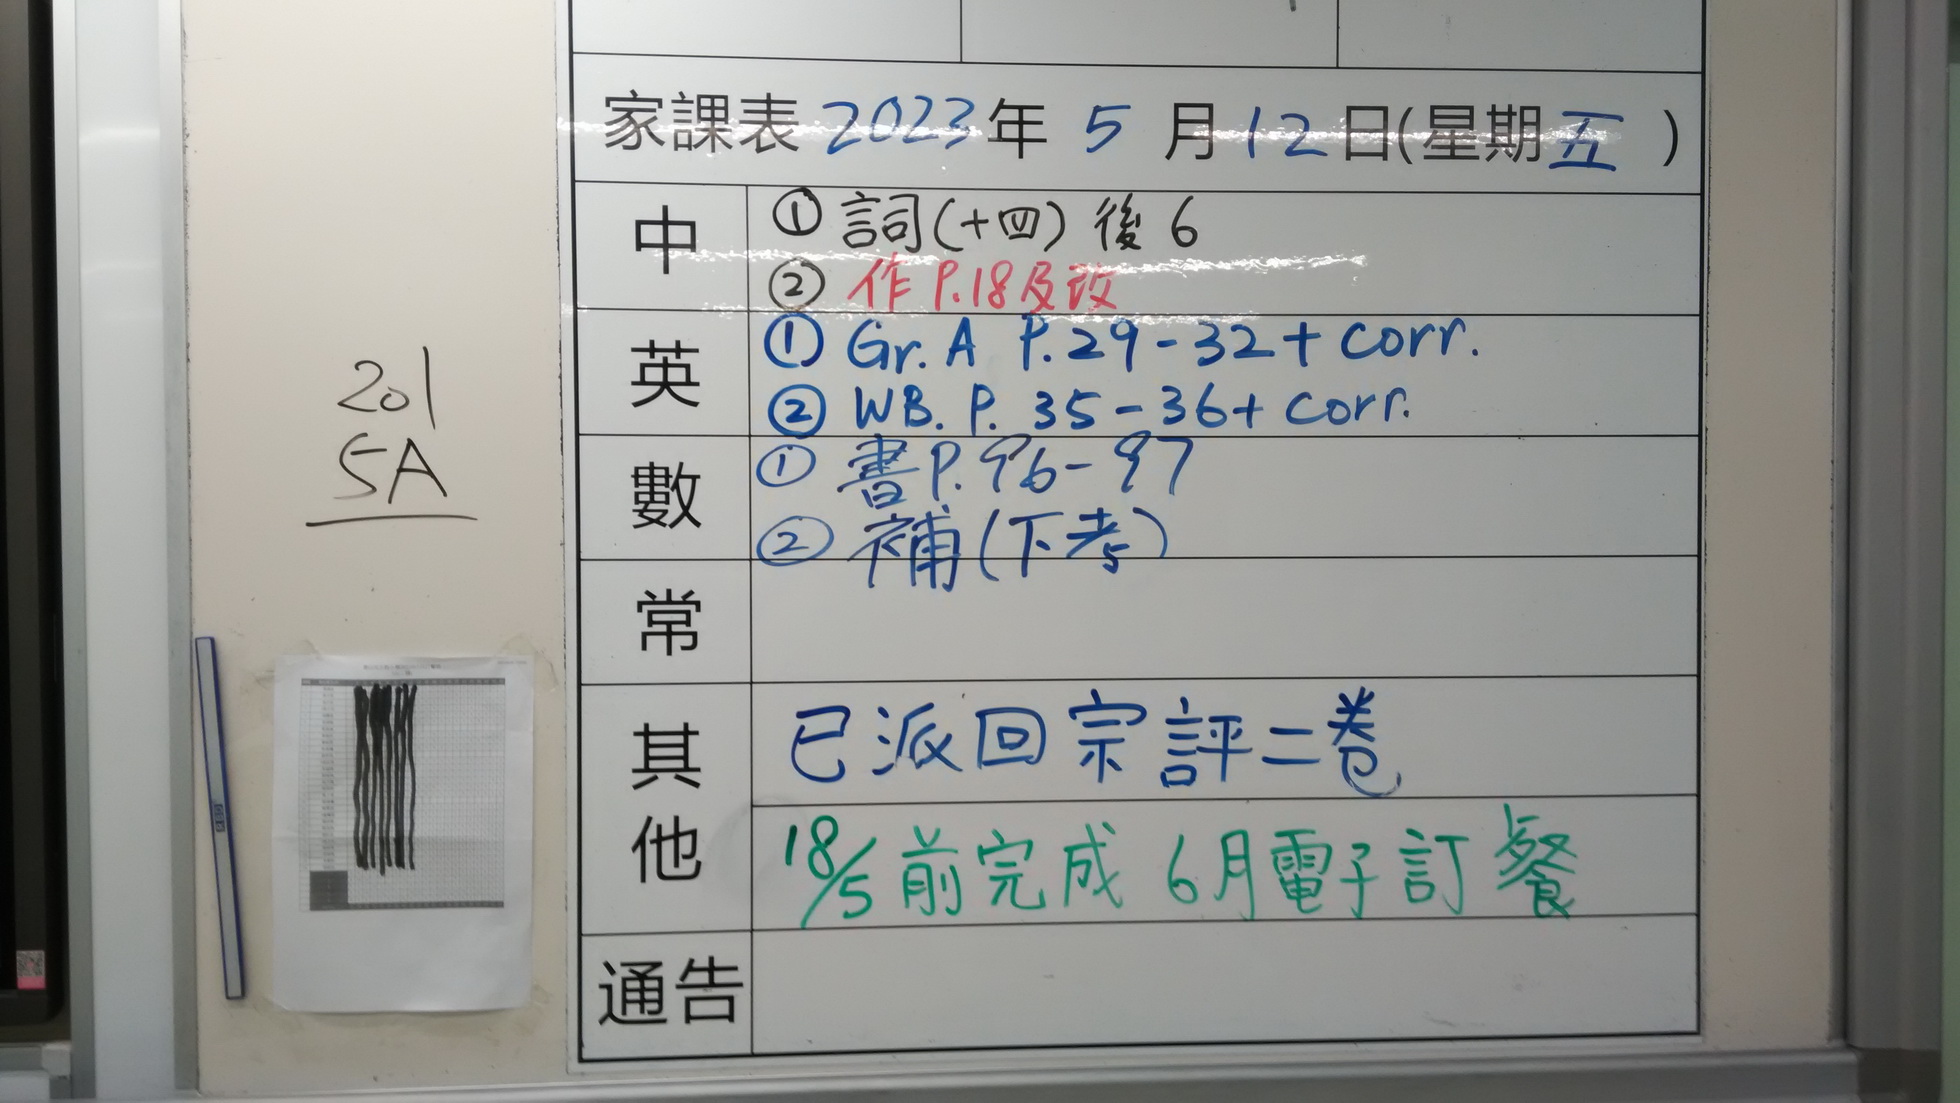 家課表 2023年 5 月 12日(星期五 )
中
① 詞(十四) 後 6
② 作 P.18及改
英
① Gr. A P.29-32+ corr.
② WB. P. 35-36+ corr.
數
① 書P.96-97
② 補(下考)
常
其他
已派回宗評二卷
18/5前完成 6月電子訂餐
通告
201
5A